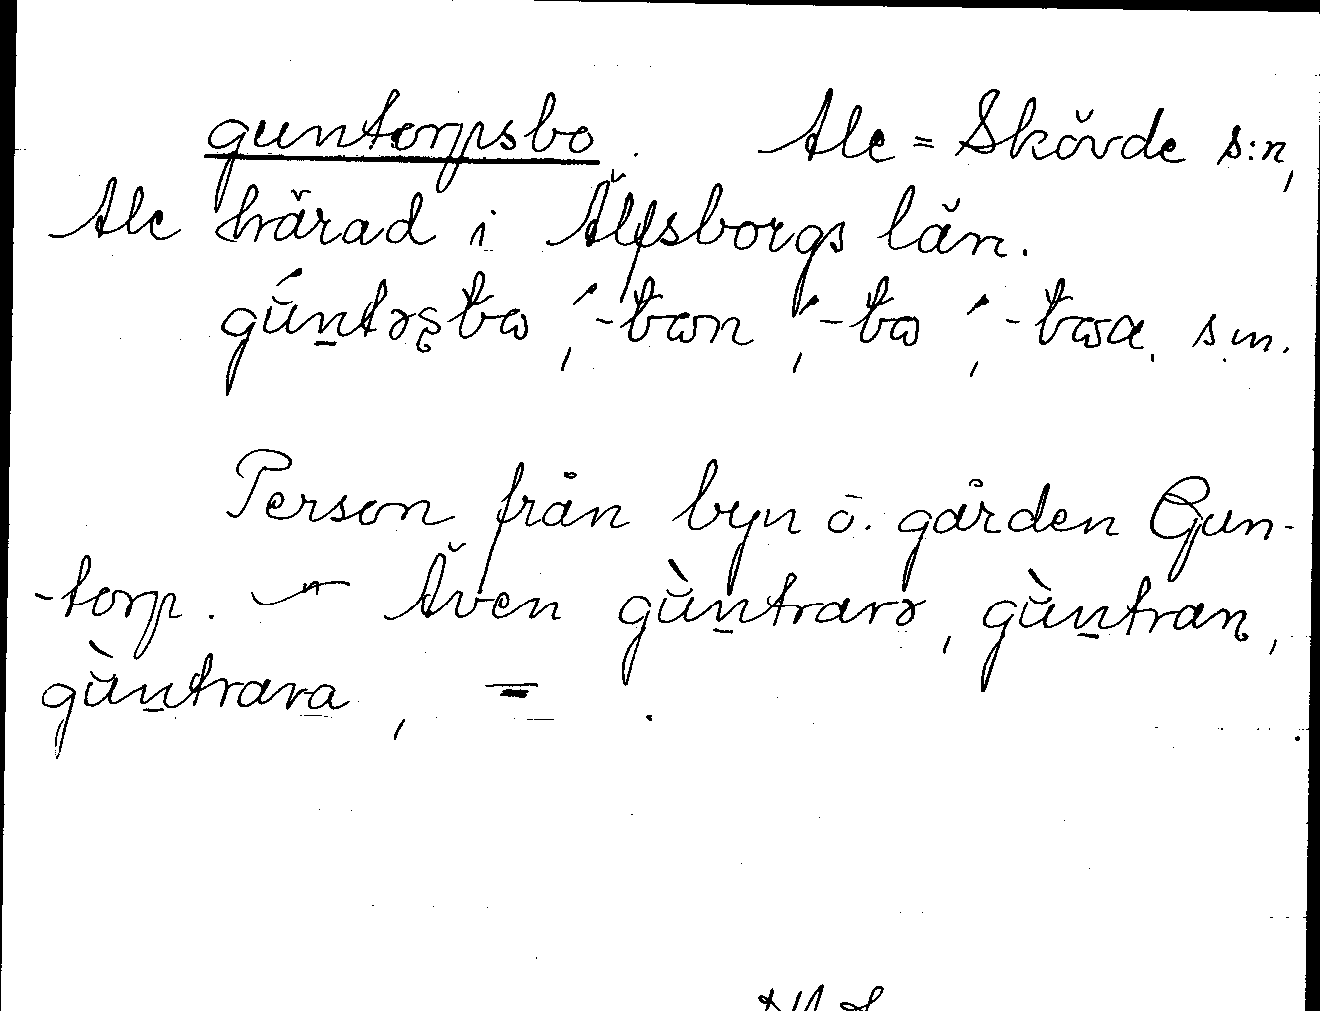 guntorpsbo. Ale=Skövde s:n,
Ale härad i Älfsborgs län.
gúntəʂbɷ ́, -bɷn ́, -bɷ ́, -bɷa. s.m.
Person från byn o. gården Gun-
-torp. ~ Även gùntrarə, gùntran,
gùntrara, = .